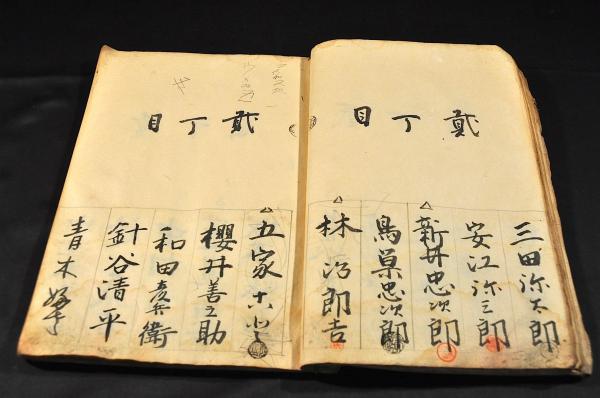 貳丁目
三田弥太郎
安江弥三郎
新井忠次郎
鳥巣忠次郎
林治郎吉
貳丁目
五家
櫻井善之助
和田彦兵衛
針谷清平
青木